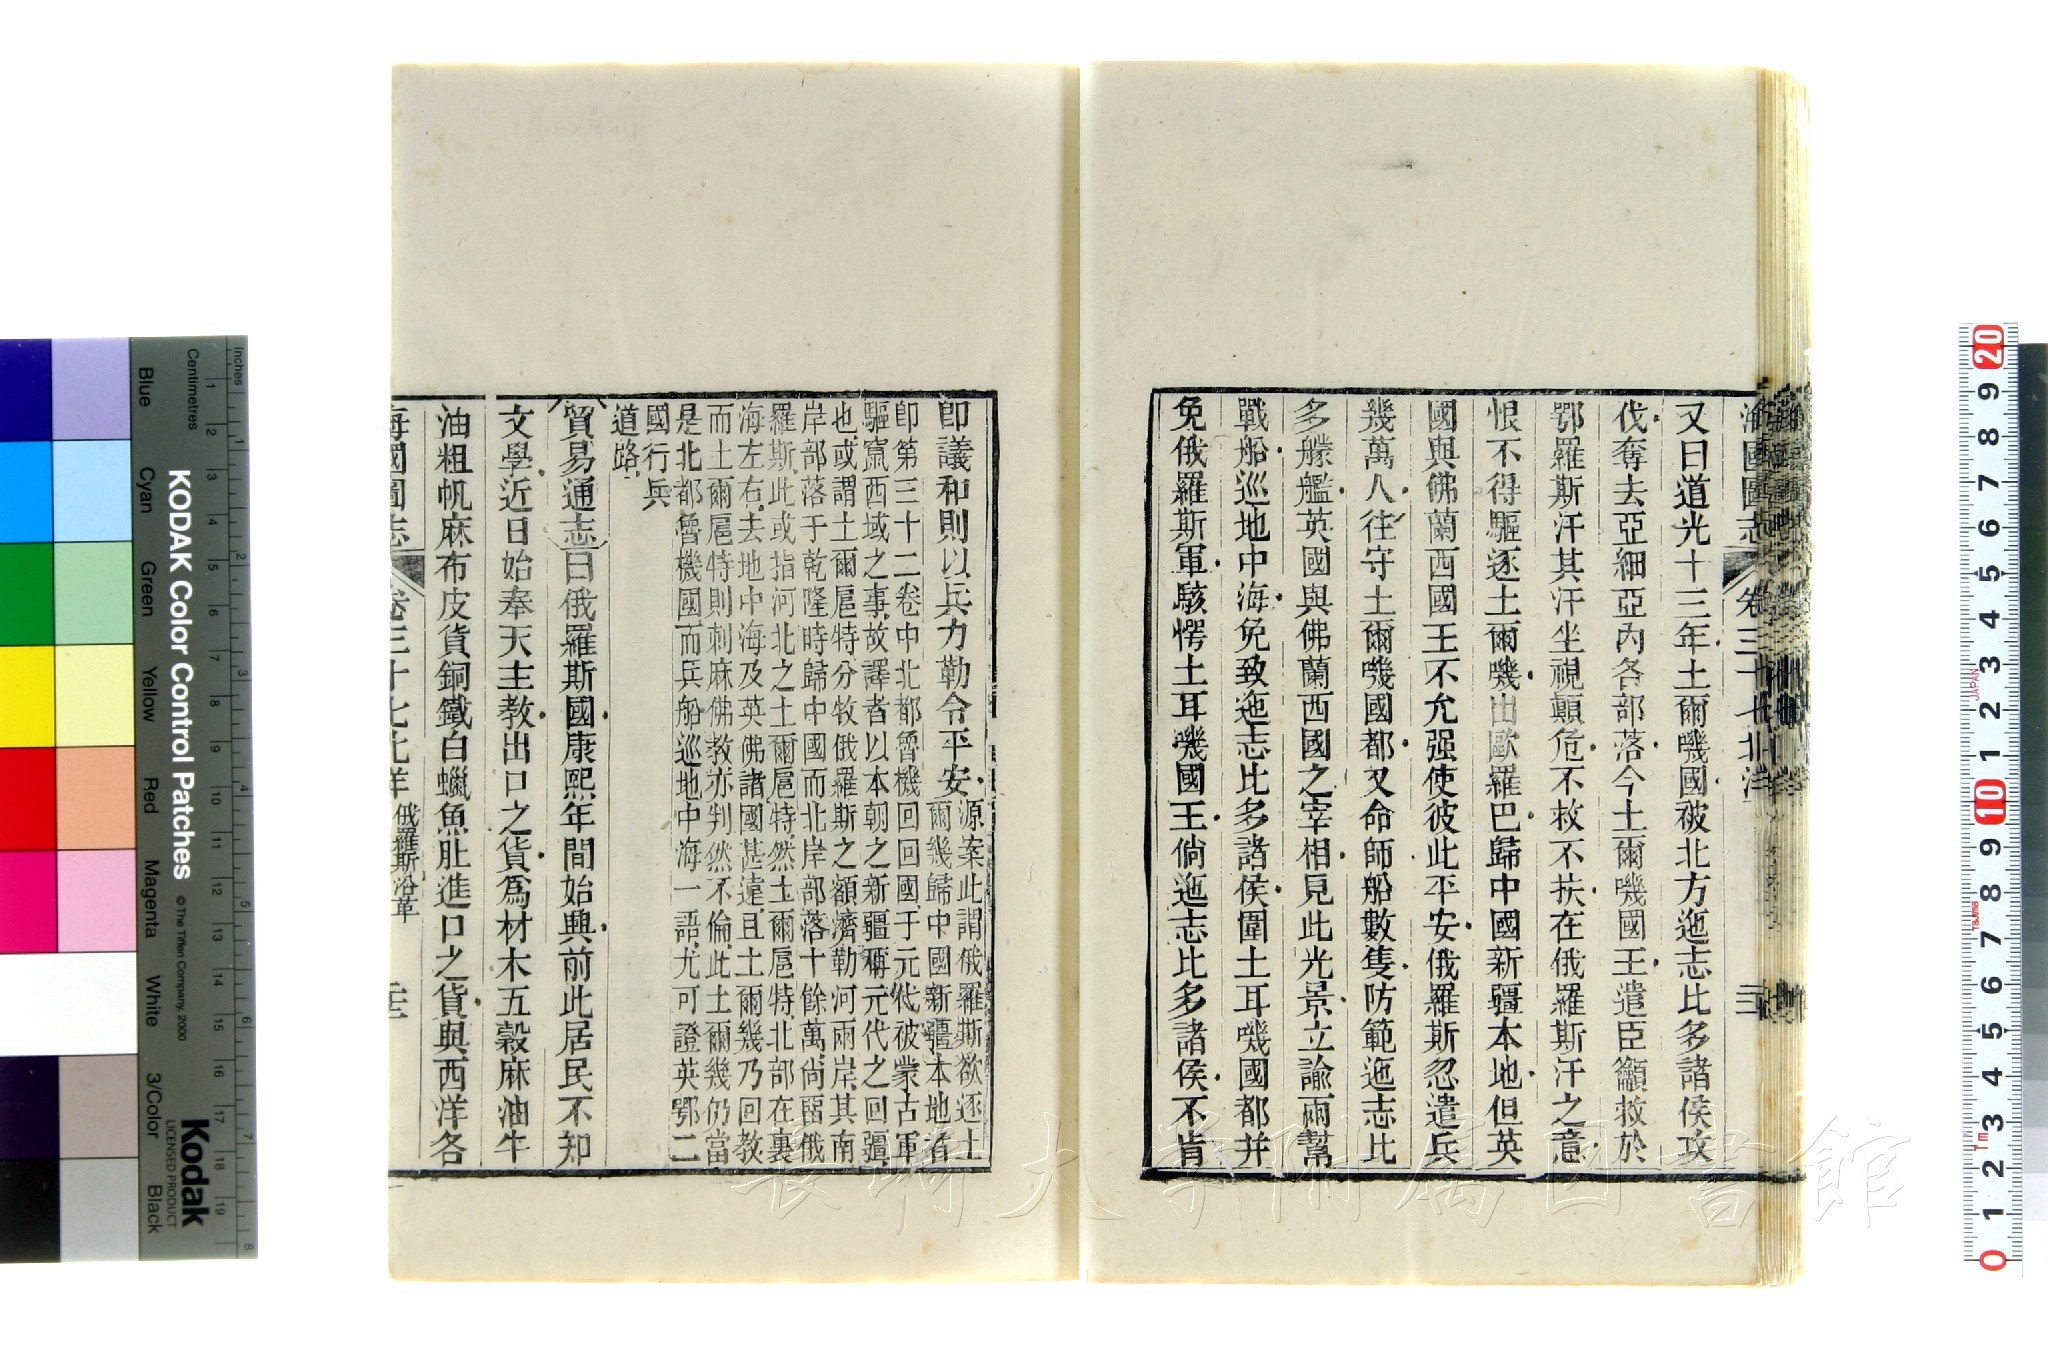 海國圖志 卷三十七北洋
又曰道光十三年土爾嘰國被北方迤志比多諸侯攻
伐奪去亞細亞內各部落今土爾嘰國王遣臣籲救於
鄂羅斯汗其汗坐視顚危不救不扶在俄羅斯汗之意
恨不得驅逐土爾嘰出歐羅巴歸中國新疆本地但英
國與佛蘭西國王不允强使彼此平安俄羅斯忽遣兵
幾萬人往守土爾嘰國都又命師船數隻防範迤志比
多艨艦英國與佛蘭西國之宰相見此光景立諭兩幫
戰船巡地中海免致迤志比多諸侯圍土耳嘰國都幷
免俄羅斯軍駭愕土耳嘰國王倘迤志比多諸侯不肯
卽議和則以兵力勒令平安
源案此謂俄羅斯欲逐土
爾幾歸中國新疆本地者
卽第三十二卷中北都魯機回回國于元代被蒙古軍
驅竄西域之事故譯者以本朝之新疆稱元代之回疆
也或謂土爾扈特分牧俄羅斯之額濟勒河兩岸其南
岸部落于乾隆時歸中國而北岸部落十餘萬尙留俄
羅斯此或指河北之土爾扈特然土爾扈特北部在裏
海左右去地中海及英佛諸國甚遠且土爾幾乃回教
而土爾扈特則刺麻佛教亦判然不倫此土爾幾仍當
是北都魯機國而兵船巡地中海一語尤可證英鄂二
國行兵
道路
貿易通志曰俄羅斯國康熙年間始興前此居民不知
文學近日始奉天主教出口之貨爲材木五穀麻油牛
油粗帆麻布皮貨銅鐵白蠟魚肚進口之貨與西洋各
海國圖志 卷三十七北洋 俄羅斯沿革
長崎大学附属図書館
KODAK Color Control Patches
© The Tiffen Company, 2000
Kodak
LICENSED PRODUCT
Inches
Centimetres
Blue
Cyan
Green
Yellow
Red
Magenta
White
3/Color
Black